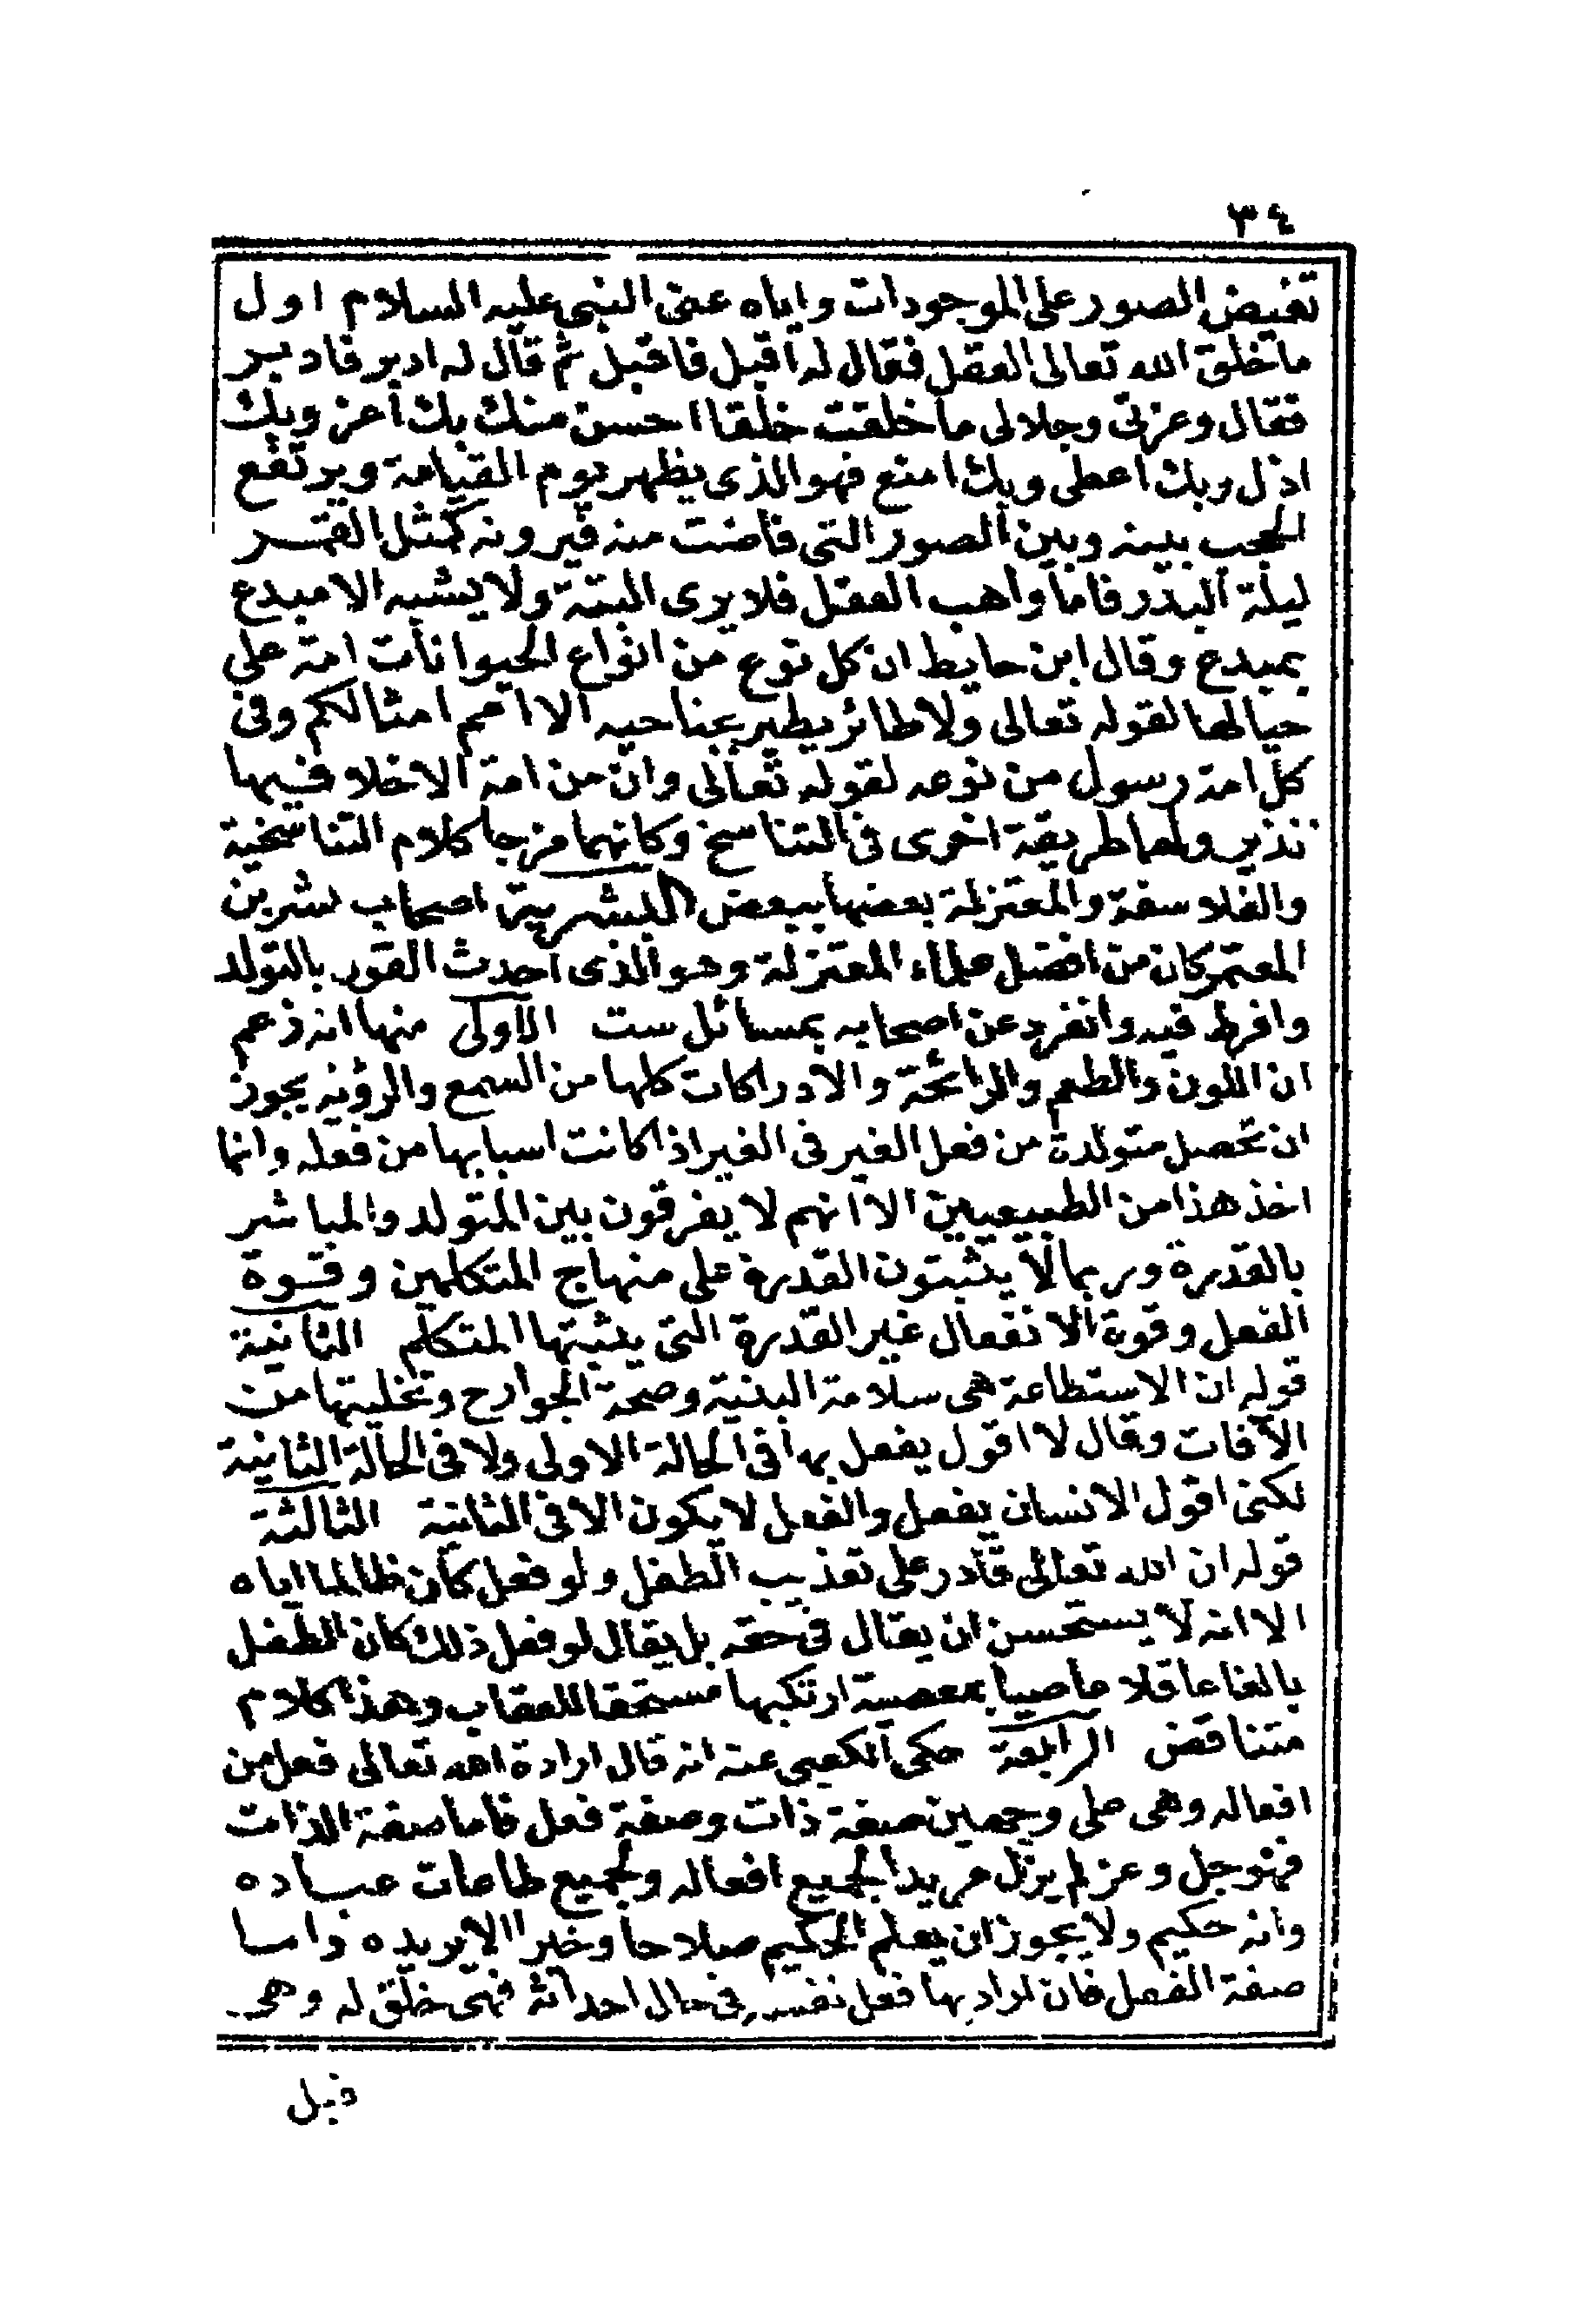 ٣٤
تفيض الصور على الموجودات واياه عنى النبى عليه السلام اول
ما خلق الله تعالى العقل فقال له اقبل فاقبل ثم قال له ادبر فادبر
فقال وعزتى وجلالى ما خلقت خلقا احسن منك بك أعز وبك
اذل وبك اعطى وبك امنع فهو الذى يظهر يوم القيامة ويرتفع
الحجب بينه وبين الصور التى فاضت منه فيرونه كمثل القمر
ليلة البدر فاما واهب العقل فلا يرى البتة ولا يشبه الا مبدع
بمبدع وقال ابن حايط ان كل نوع من انواع الحيوانات امة على
حيالها لقوله تعالى ولا طائر يطير بجناحيه الا امم امثالكم وفى
كل امة رسول من نوعه لقوله تعالى وان من امة الا خلا فيها
نذير ولهما طريقة اخرى فى التناسخ وكانهما مزجا كلام التناسخية
والفلاسفة والمعتزلة بعضها ببعض البشرية اصحاب بشر بن
المعتمر كان من افضل علماء المعتزلة وهو الذى احدث القور بالتولد
وافرط فيه وانفرد عن اصحابه بمسائل ست الاولى منها انه زعم
ان اللون والطعم والرائحة والادراكات كلها من السمع والرؤية يجوز
ان تحصل متولدة من فعل الغير فى الغير اذا كانت اسبابها من فعله وانما
اخذ هذا من الطبيعيين الا انهم لا يفرقون بين المتولد والمباشر
بالقدرة وربما لا يثبتون القدرة على منهاج المتكلمين وقوة
الفعل وقوة الانفعال غير القدرة التى يثبتها المتكلم الثانية
قوله ان الاستطاعة هى سلامة البنية وصحة الجوارح وتخليتها من
الآفات وقال لا اقول يفعل بها فى الحالة الاولى ولا فى الحالة الثانية
لكنى اقول الانسان يفعل والفعل لا يكون الا فى الثانية الثالثة
قوله ان الله تعالى قادر على تعذيب الطفل ولو فعل كان ظالما اياه
الا انه لا يستحسن ان يقال فى حقه بل يقال لو فعل ذلك كان الطفل
بالغا عاقلا عاصيا بمعصية ارتكبها مستحقا للعقاب وهذا كلام
متناقض الرابعة حكى الكعبى عنه انه قال ارادة الله تعالى فعل من
افعاله وهى على وجهين صفة ذات وصفة فعل فاما صفة الذات
فهو جل وعز لم يزل مريدا لجميع افعاله ولجميع طاعات عباده
وانه حكيم ولا يجوز ان يعلم الحكيم صلاحا وخيرا الا يريده واما
صفة الفعل فان اراد بها فعل نفسه فى حال احداثه فهى خلق له وهى
قبل